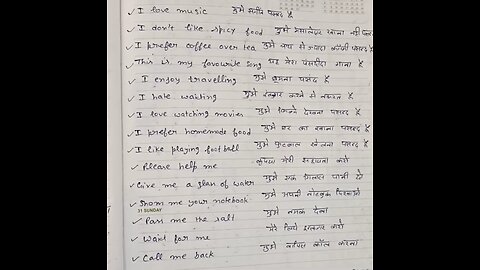 I love music मुझे संगीत पसंद है
I don't like spicy food मुझे मसालेदार खाना नहीं पसंद
I prefer coffee over tea मुझे चाय से ज्यादा कॉफी पसंद है
This is my favourite song यह मेरा पसंदीदा गाना है
I enjoy travelling मुझे घूमना पसंद है
I hate waiting मुझे इंतजार करने से नफरत है
I love watching movies मुझे फिल्में देखना पसंद है
I prefer homemade food मुझे घर का खाना पसंद है
I like playing football मुझे फुटबाल खेलना पसंद है
Please help me कृपया मेरी सहायता करो
Give me a glass of water मुझे एक गिलास पानी दो
Show me your notebook मुझे अपनी नोटबुक दिखाओ
31 SUNDAY
Pass me the salt मुझे नमक देना
Wait for me मेरे लिये इन्तजार करो
Call me back मुझे वापिस कॉल करना